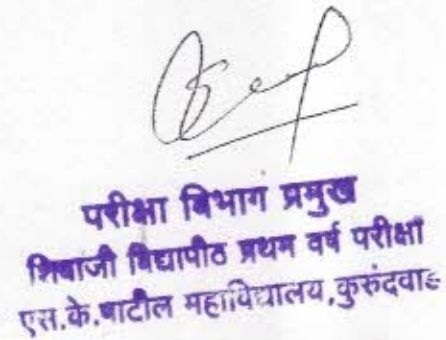 परीक्षा विभाग प्रमुख
शिवाजी विद्यापीठ प्रथम वर्ष परीक्षा
एस.के.पाटील महाविद्यालय,कुरुंदवाड